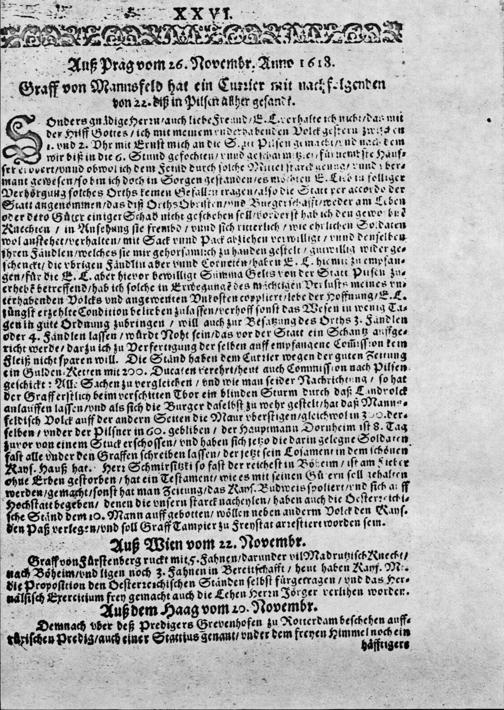 XXVI.
Auß Prag vom 26. Novembr. Anno 1618.
Graff von Mannsfeld hat ein Currier mit nachfolgenden
von 22. diß in Pilsen alher gesandt.
Sonders gnädige Herrn/auch liebe Freund/E.L. verhalte ich nicht/das mit
der Hilff Gottes/ich mit meinem underhabenden Volck gestern zwischen
1. vnd 2. Uhr mit Ernst mich an die Statt Pilsen gemacht/vnd nach dem
wir biß in die 6. Stund gefochten/
mant gewesen/so bin ich doch in Sorgen gestanden/es möchten E. L. in solliger
Verhörgung solches Orths keinen Gefallen tragen/also die Statt per accordo der
Statt angenommen/das diß Orths Obristen/vnd Burgerschafft/weder am Leben
oder dero Güter einiger Schad nicht geschehen soll/vorderst hab ich den geworbne
Knechten/in Ansehung sie frembd/vnd sich ritterlich/wie ehrlichen Soldaten
wol anstehet/verhalten/mit Sack vnd Pack abziehen verwilligt/vnd denselben
ihren Fändlen/welches sie mir gehorsamlich zu handen gestelt/gutwillig wider ge-
schenckt/die übrigen Fändlin aber vnnd Cornetën/haben E. L. hiemit zu empfan-
gen/für die E. L. aber hievor bewillige Summa Gelts von der Statt Pilsen zu
erhebt betreffend/hab ich solche in Erwegung des mächtigen Verlusts meines vn-
terhabenden Volcks vnd angewenten Vnkosten coppliert/lebe der Hoffnung/E. L.
jüngst erzehlte Condition belieben zulassen/verhoff sonst das Wesen in wenig Ta-
gen in gute Ordnung zubringen/will auch zur Besatzung des Orths 3. Fändlen
oder 4. Fändlen lassen/würdt Noht sein/das vor der Statt ein Schantz auffge-
richt werde/darzu ich zu Verfertigung der selben auff empfangene Comission kein
Fleiß nicht sparen will. Die Ständ haben dem Currier wegen der guten Zeitung
ein Gulden-Ketten mit 200. Ducaten verehrt/heut auch Commission nach Pilsen
geschickt: Alle Sachen zu vergleichen/vnd wie man seider Nachrichtung/so hat
der Graff erstlich beym verschitten Thor ein blinden Sturm durch das Landvolck
anlauffen lassen/vnd als sich die Burger daselbst zu wehr gestelt/hat daß Manns-
feldisch Volck auff der andern Seiten die Maur vberstigen/gleichwol in der-
selben/vnder der Pilsner in 60. gebliben/der Hauptmann Dornheim ist 8. Tag
zuvor von einem Stuck erschossen/vnd haben sich jetzo die darin gelegne Soldaten
fast alle vnder den Graffen schreiben lassen/der jetzt sein Losament in dem schönen
Kays. Hauß hat. Herr Schmirsitzki so fast der reichest in Böheim/ist am Fieber
ohne Erben gestorben/hat ein Testament/wie es mit seinen Gütern soll gehalten
werden/gemacht/sonst hat man Zeitung/das Kays. Budweis spoliert/vnd sich auff
Hochstatt begeben/denen die vnsern starck nacheylen/haben auch die Oesterreichi-
sche Ständ dem 10. Mann auff geboten/wöllen neben anderm Volck den Kays.
den Paß verlegen/vnd soll Graff Tampier zu Freystat arrestiert worden sein.
Auß Wien vom 22. Novembr.
Graff von Fürstenberg ruckt mit 5. Fahnen/darunder vil Madrutzisch Knecht/
nach Böheim/vnd ligen noch 3. Fahnen in Bereitschafft/heut haben Kays. M.
die Proposition den Oesterreichischen Ständen selbst fürgetragen/vnd das Her-
nalsisch Exercitium frey gemacht auch die Lehen Herrn Jörger verlihen worden.
Auß dem Haag vom 20. Novembr.
Demnach vber deß Predigers Grevenhofen zu Rotterdam beschehen auff-
rürischen Predig/auch einer Statius genant/vnder dem freyen Himmel noch ein
häfftigers